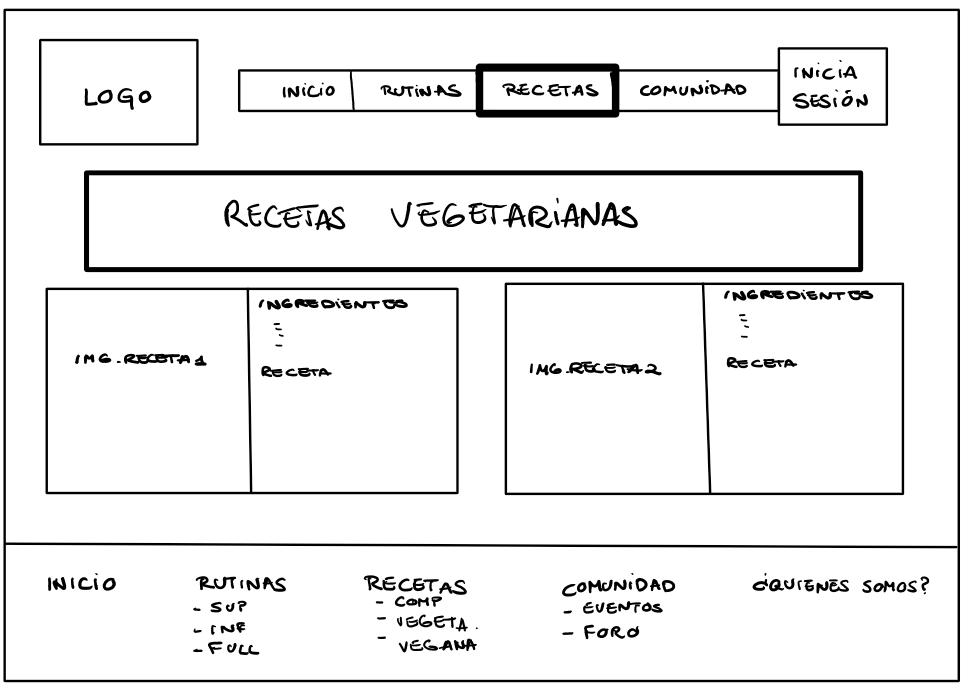 LOGO
INICIO RUTINAS RECETAS COMUNIDAD
INICIA
SESIÓN
RECETAS VEGETARIANAS
IMG. RECETA 1
INGREDIENTES
RECETA
IMG. RECETA 2
INGREDIENTES
RECETA
INICIO
RUTINAS
- SUP
- INF
- FULL
RECETAS
- COMP
- VEGETA.
- VEGANA
COMUNIDAD
- EVENTOS
- FORO
¿QUIENES SOMOS?